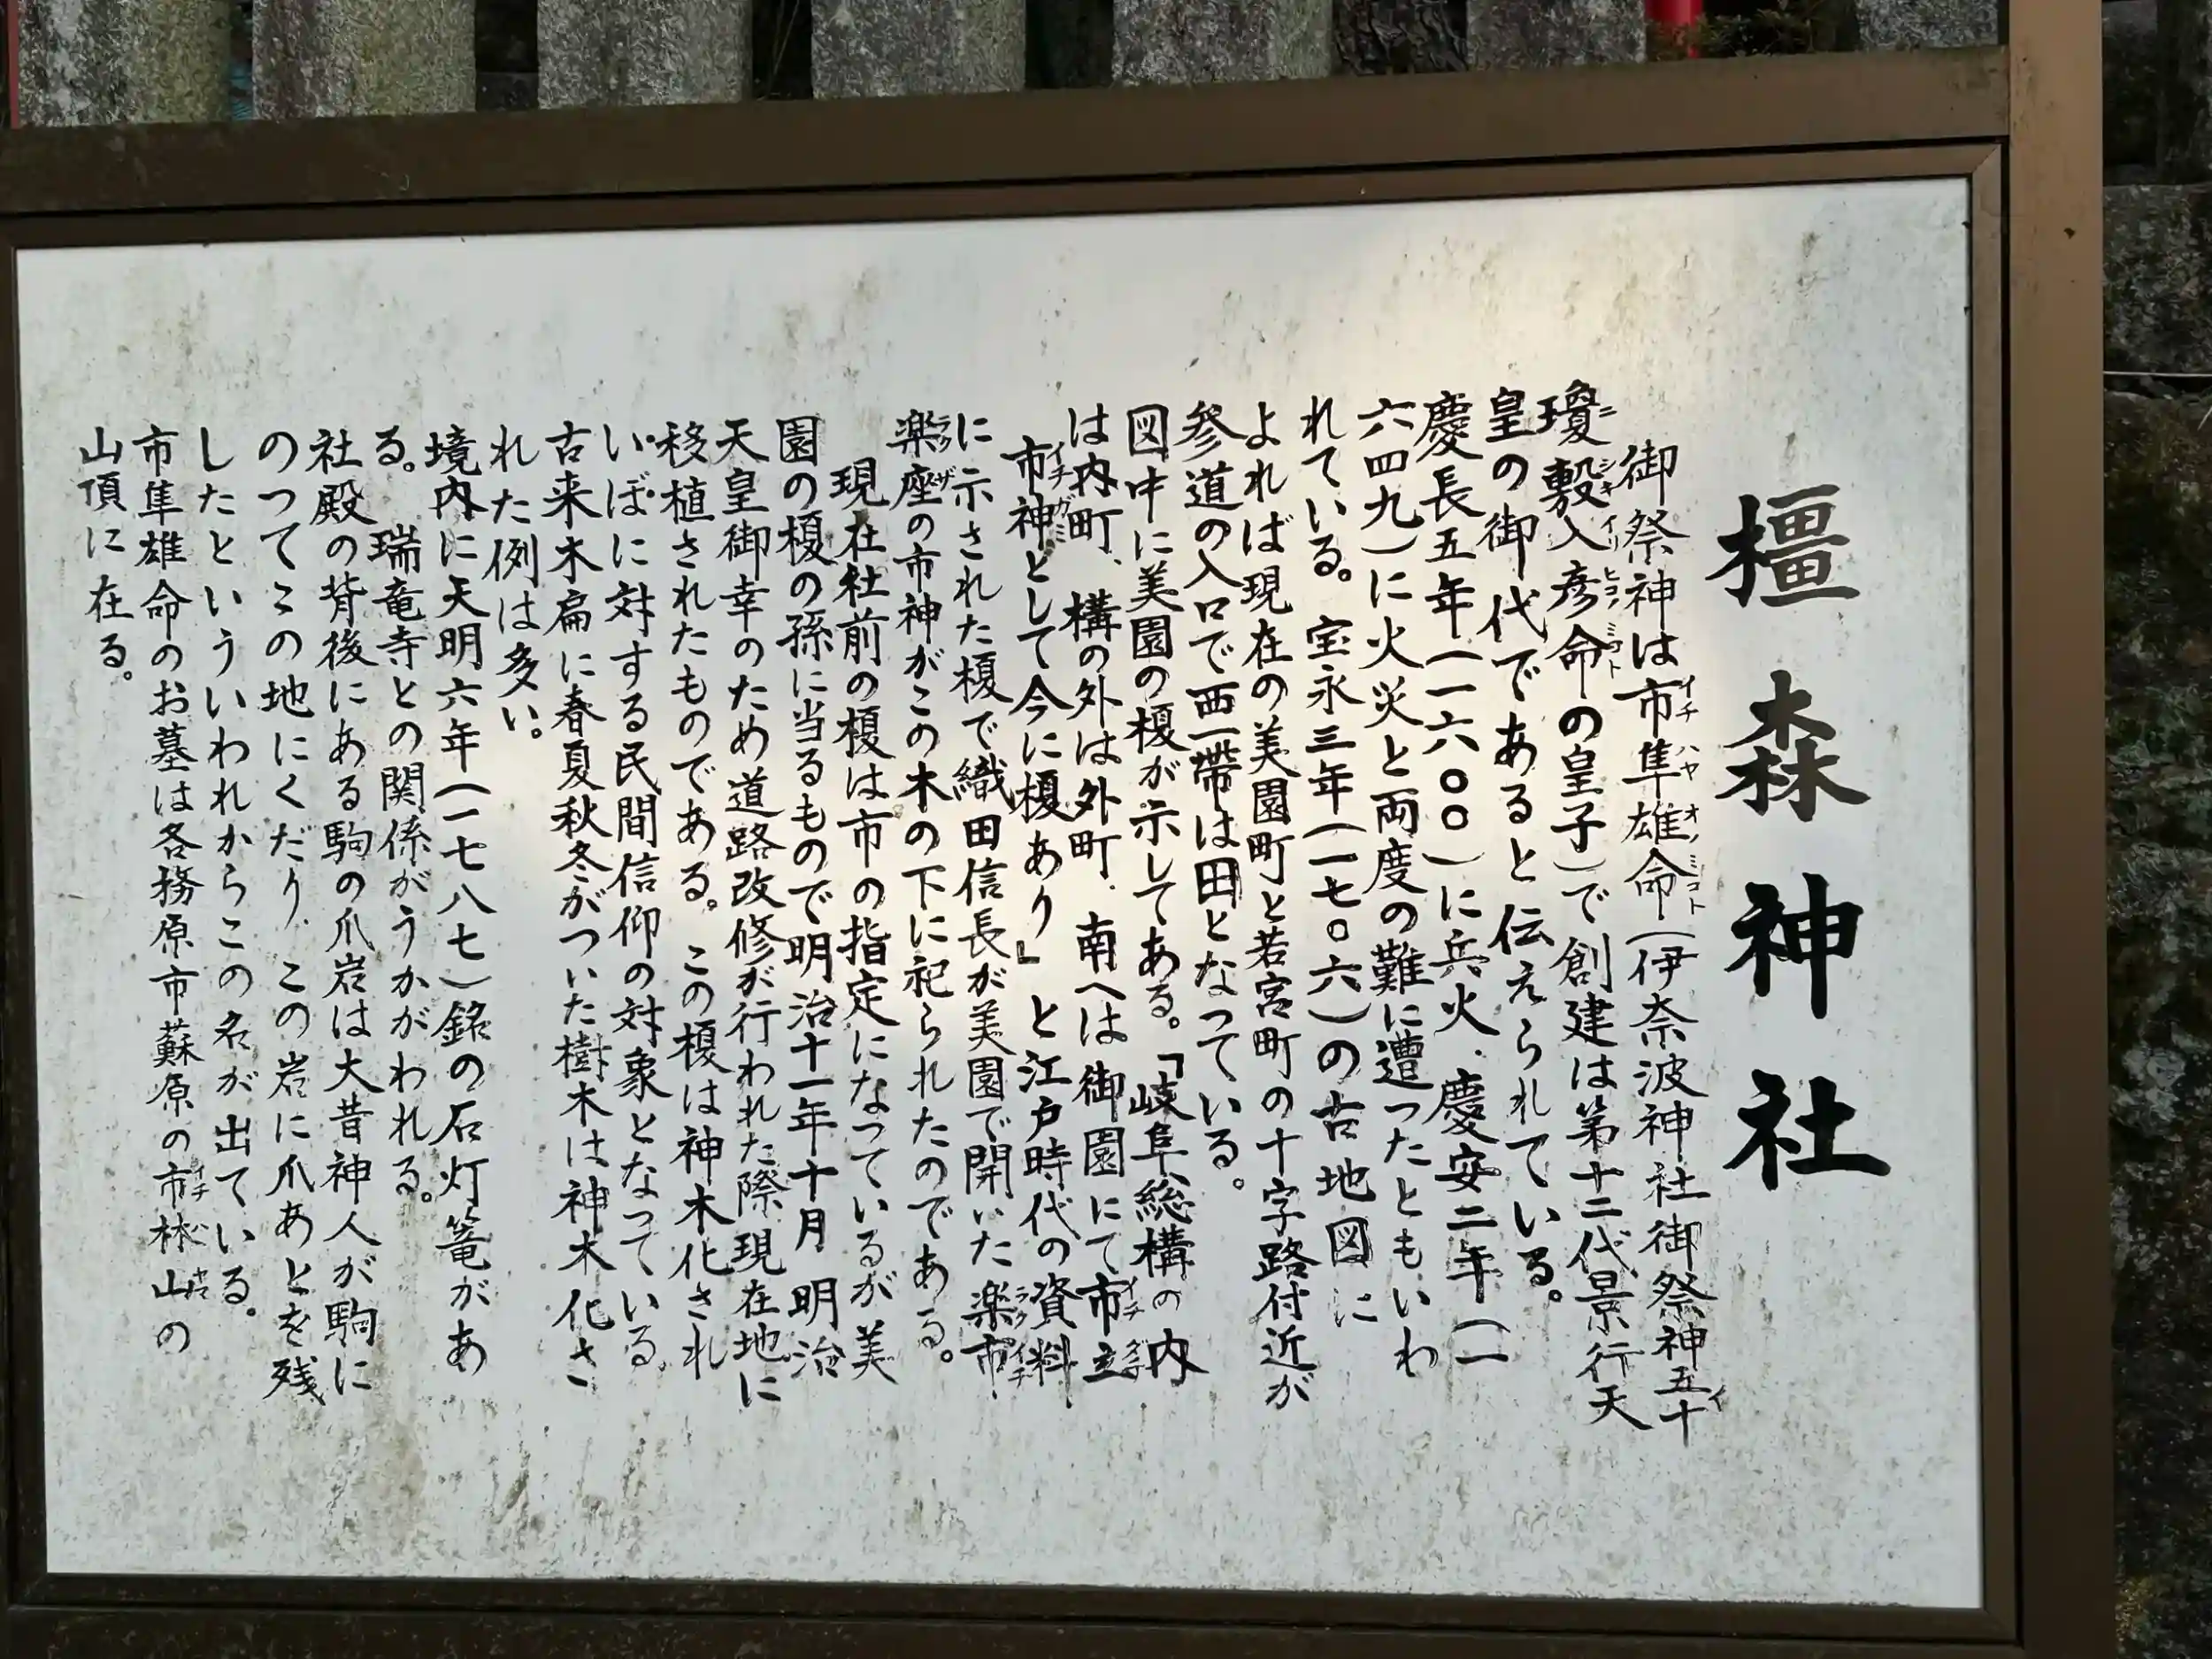 橿森神社
御祭神は市隼雄命(伊奈波神社御祭神五十
瓊敷入彦命の皇子)で創建は第十二代景行天
皇の御代であると伝えられている。
慶長五年(一六〇〇)に兵火、慶安二年(一
六四九)に火災と両度の難に遭つたともいわ
れている。宝永三年(一七〇六)の古地図に
よれば現在の美園町と若宮町の十字路付近が
参道の入口で西一帯は田となつている。
図中に美園の榎が示してある。「岐阜総構の内
は内町、構の外は外町、南へは御園にて市立
市神として今に榎あり』と江戸時代の資料
に示された榎で織田信長が美園で開いた楽市
楽座の市神がこの木の下に祀られたのである。
現在社前の榎は市の指定になつているが美
園の榎の孫に当るもので明治十一年十月明治
天皇御幸のため道路改修が行われた際現在地に
移植されたものである。この榎は神木化され
いぼに対する民間信仰の対象となつている
古来木扁に春夏秋冬がついた樹木は神木化さ
れた例は多い。
境内に天明六年(一七八七)銘の石灯篭があ
る。瑞竜寺との関係がうかがわれる。
社殿の背後にある駒の爪岩は大昔神人が駒に
のつてこの地にくだり、この岩に爪あとを残
したといういわれからこの名が出ている。
市隼雄命のお墓は各務原市蘇原の市林山の
山頂に在る。